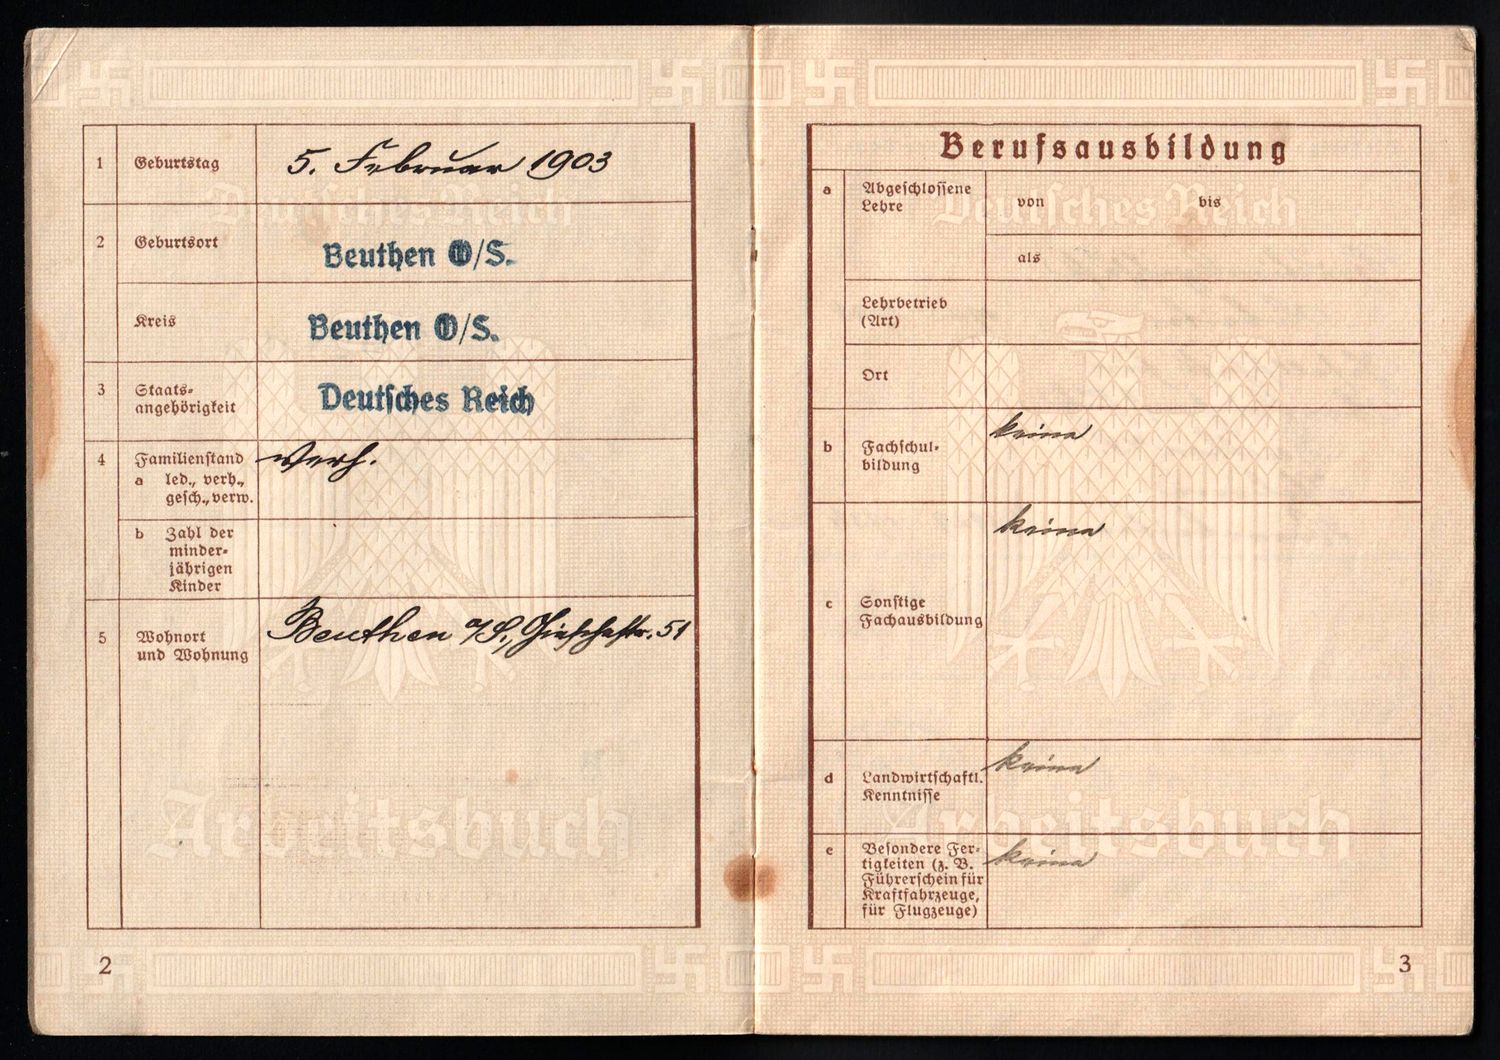 1 Geburtstag 5. Februar 1903
2 Geburtsort Beuthen O/S.
Kreis Beuthen O/S.
3 Staats-
angehörigkeit Deutsches Reich
4 Familienstand verh.
a led., verh.,
gesch., verw.
b Zahl der
minder-
jährigen
Kinder
5 Wohnort
und Wohnung
Beuthen O/S., 51
Deutsches Reich
Arbeitsbuch
2
Berufsausbildung
a Abgeschlossene
Lehre
von bis
als
Lehrbetrieb
(Art)
Ort
b Fachschul-
bildung
keine
c Sonstige
Fachausbildung
keine
d Landwirtschaftl.
Kenntnisse
keine
e Besondere Fer-
tigkeiten (z. B.
Führerschein für
Kraftfahrzeuge,
für Flugzeuge)
keine
Deutsches Reich
Arbeitsbuch
3